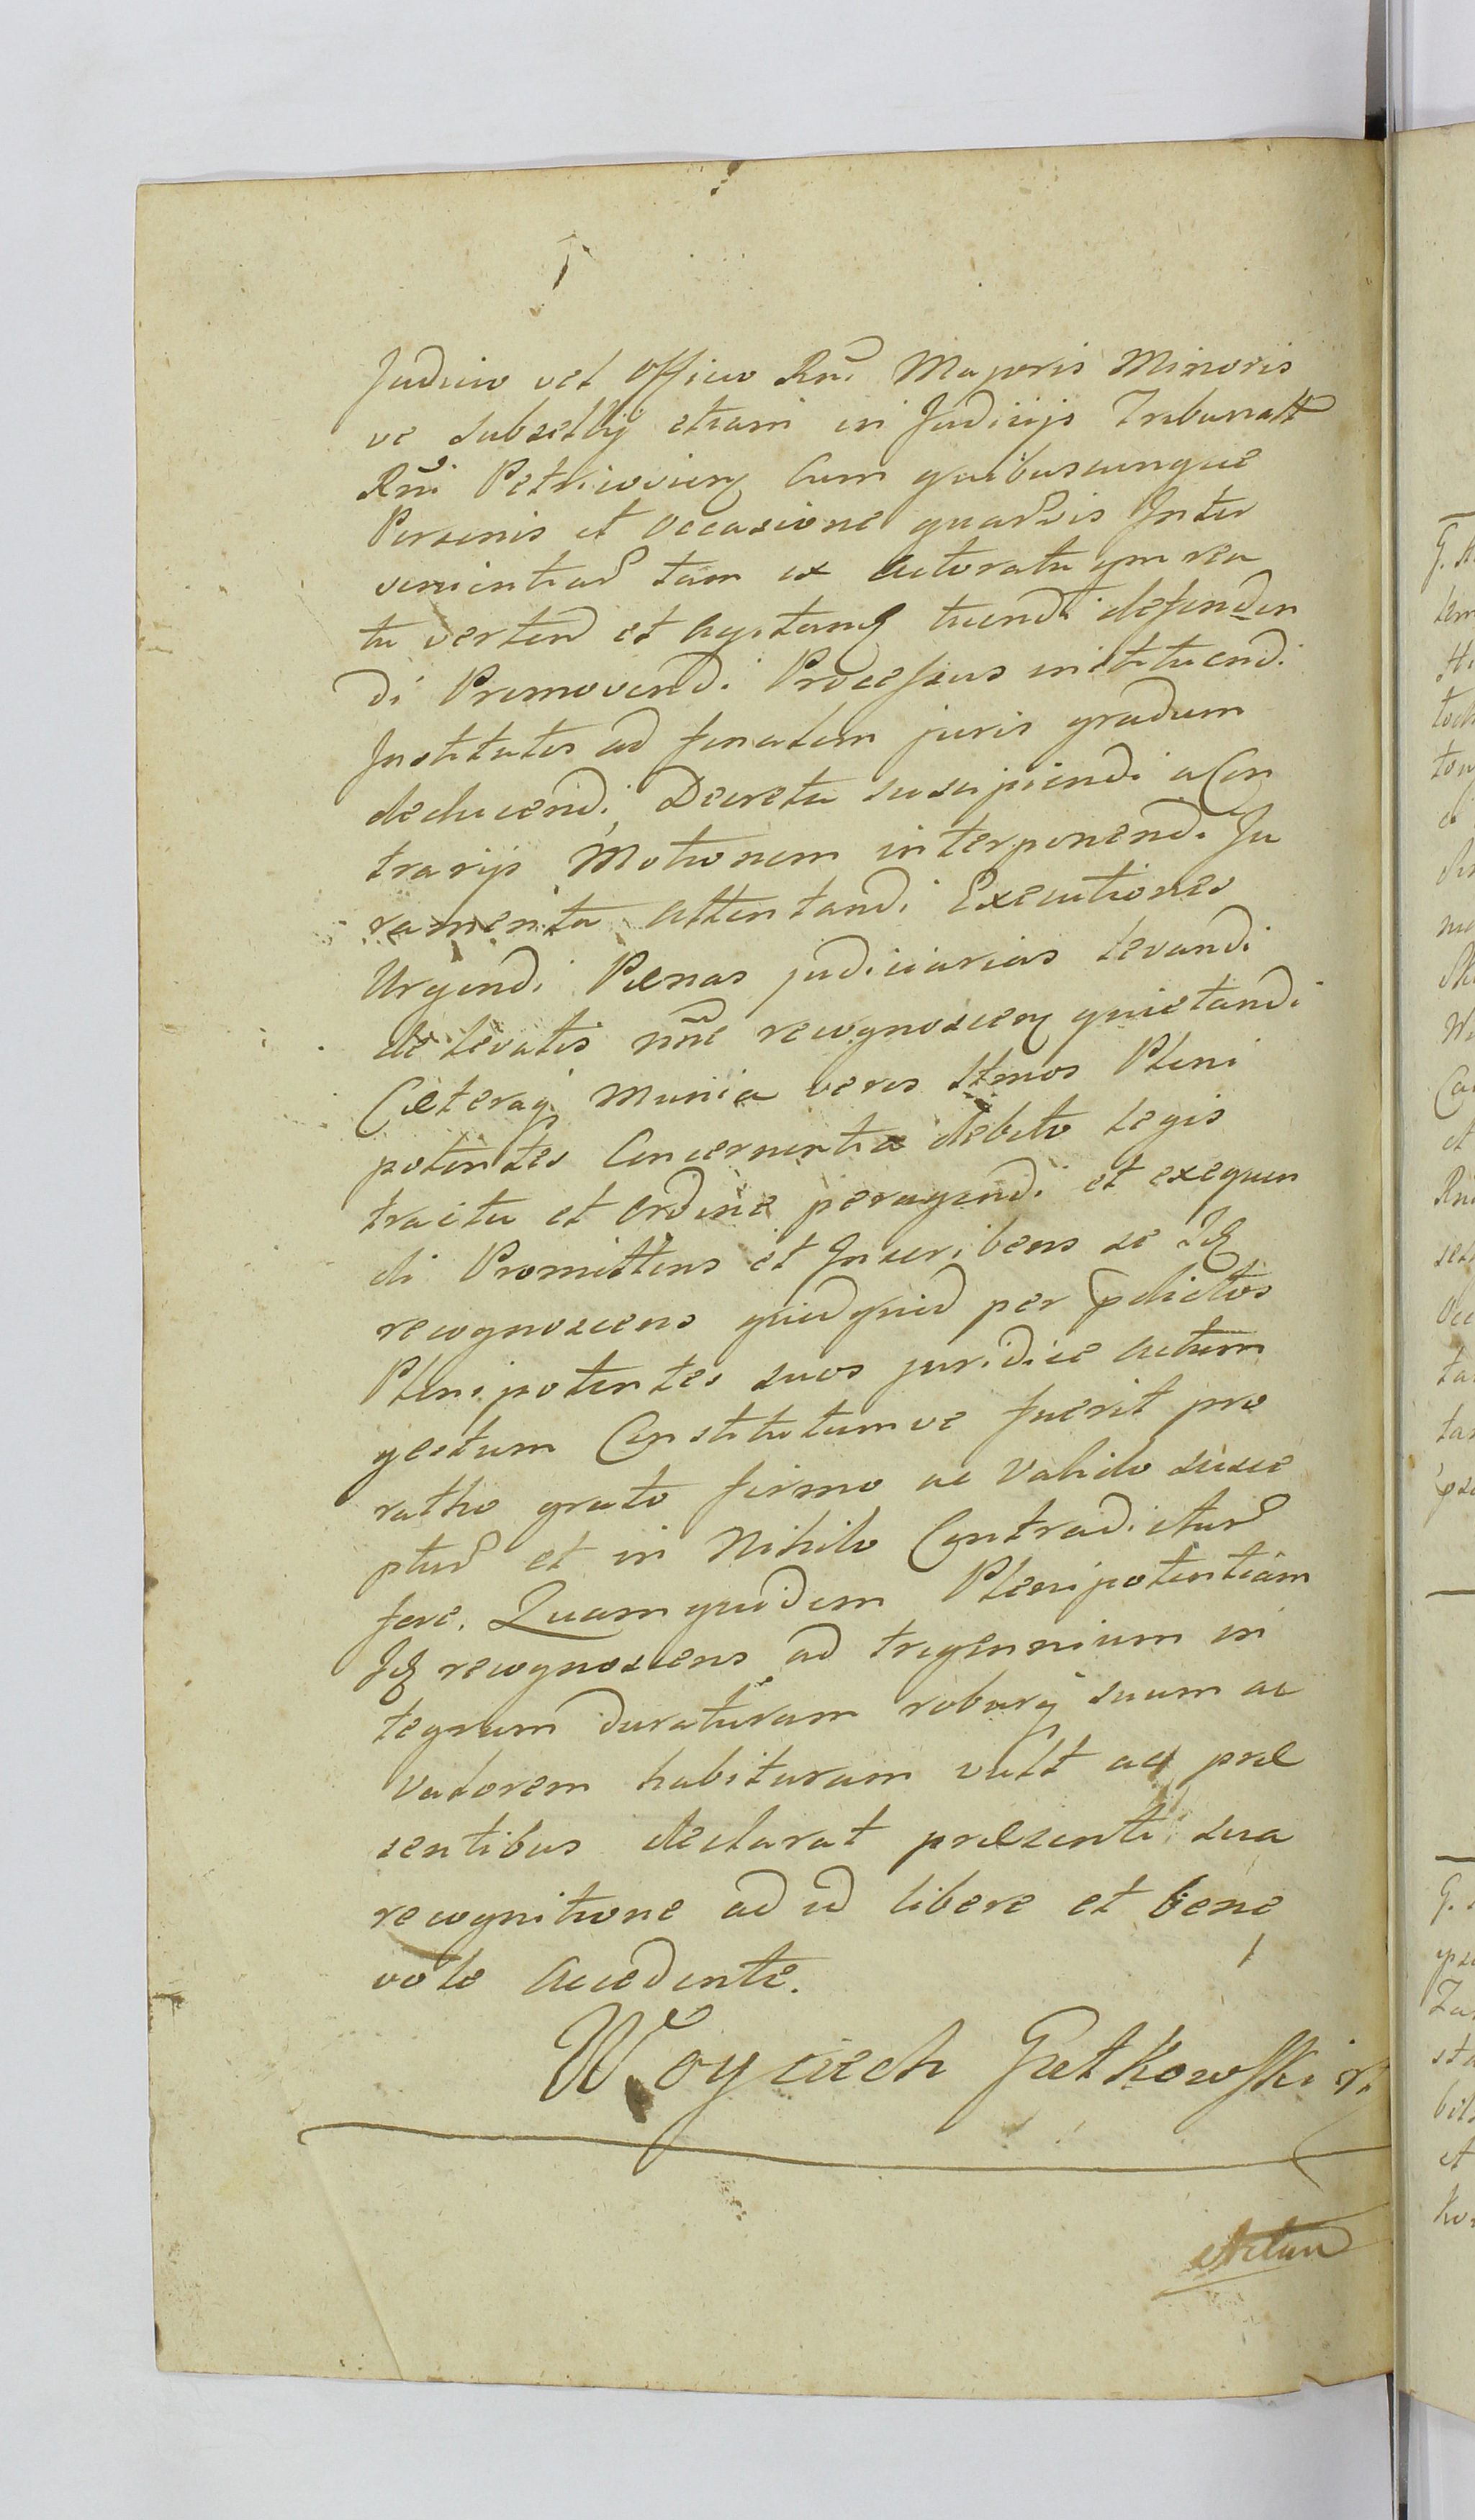 Judicio vel Officio Rni Majoris Minoris
ve Subselly etiam in Judicijs Tribunalt
Rni Petricovien Cum quibuscunque
Personis et occasione quarvis Inter
venientiar tam ex actoratu qm rea
tu verten et agitan tuendi defenden
di Promovendi Processus instituendi
Institutos ad finalem juris gradum
deducendi, Decreta suscipiendi a Con
trarijs Motionem interponendi Ju
ramenta attentandi Executiones
Urgendi Pœnas judiciarias levandi
de levatis nne recognoscen quietandi
Cæteraq munia veros ltmos Pleni
potentes Concernentia debito legis
tractu et ordine peragendi et exequen
di Promittens et Inscribens se Id
recognoscens quidquid per pdictos
Plenipotentes suos juridice actum
gestum Constitutumve fuerit pro
ratho grato firmo ac valido susce
ptur et in Nihilo Contradictur
fore. Quam quidem Plenipotentiam
Id recognoscens ad trigennium in
tegrum duraturam roburq suum ac
valorem habituram vult aq præ
sentibus declarat præsenti sua
recognitione ad id libere et bene
vole accedente.
Woyciech Gutkowski
Actum